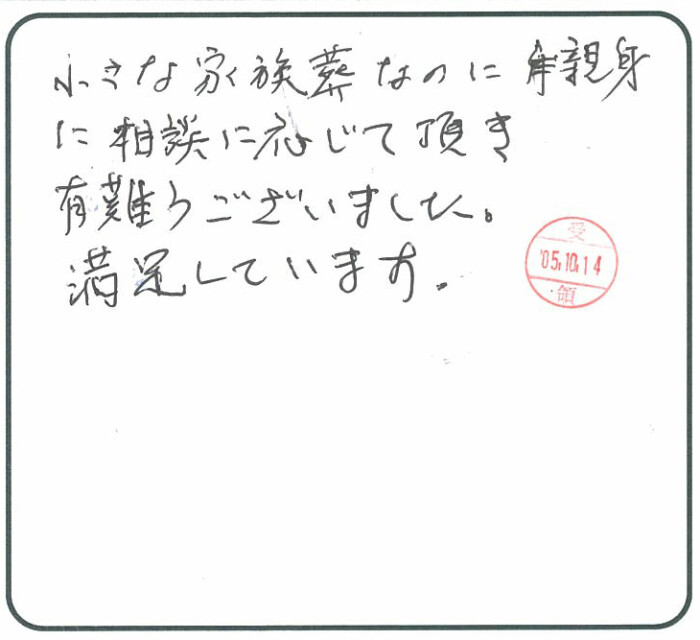 小さな家族葬なのに親身
に相談に応じて頂き
有難うございました。
満足しています。
受
'05.10.14
領